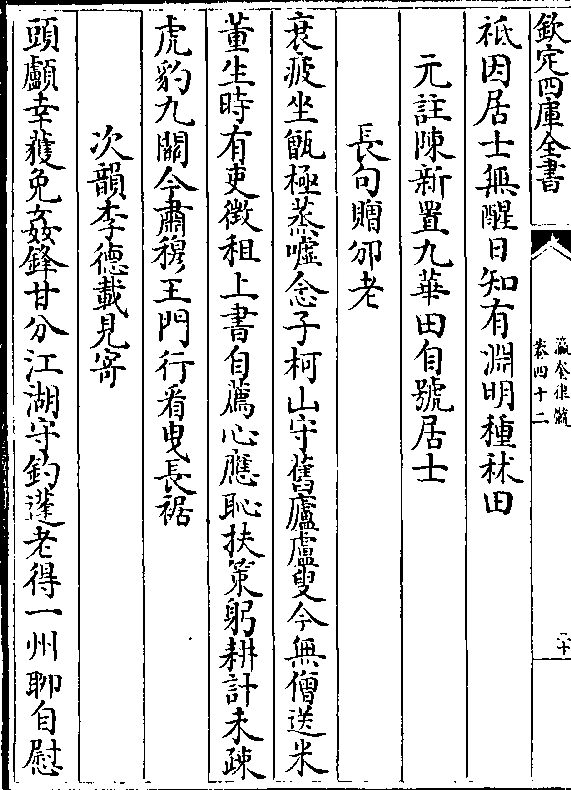 欽定四庫全書
瀛奎律髓
卷四十二
二十
袛因居士無醒日知有淵明種秫田
元註陳新置九華田自號居士
長句贈邠老
衰疲坐甑極蒸噓念子柯山守舊廬盧叟今無僧送米
董生時有吏徵租上書自薦心應恥扶策躬耕計未疎
虎豹九關今肅穆王門行看曳長裾
次韻李德載見寄
頭顱幸獲免姦鋒甘分江湖守釣蓬老得一州聊自慰